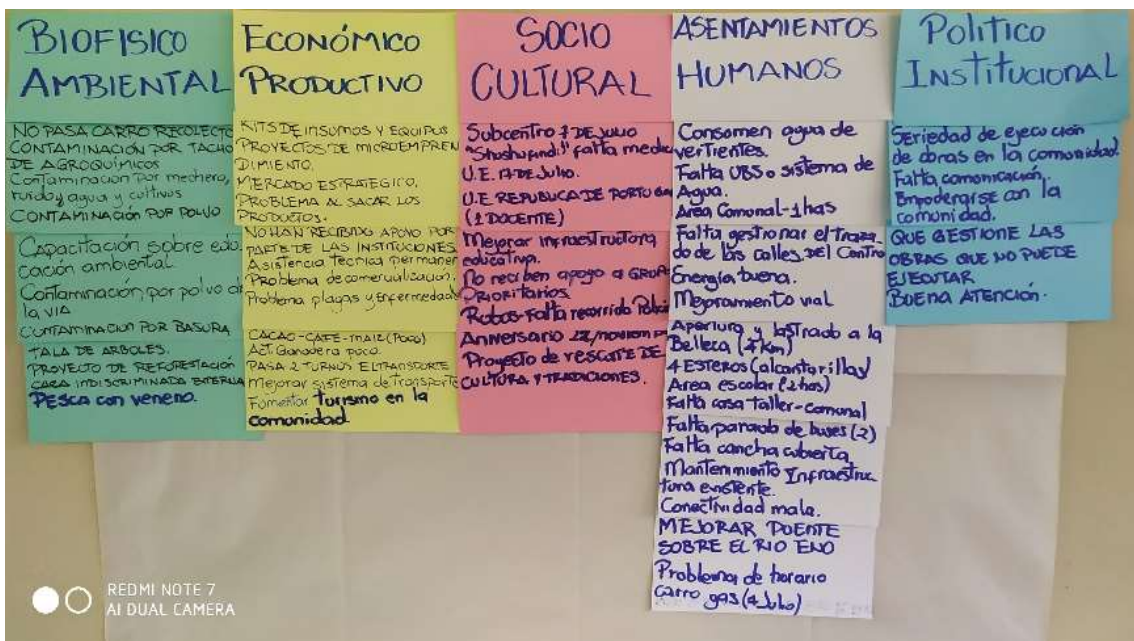 BIOFISICO
AMBIENTAL
NO PASA CARRO RECOLECTO
CONTAMINACIÓN POR TACHO
DE AGROQUÍMICOS
Contaminación por mechero,
ruido y agua y cultivos
CONTAMINACIÓN POR POLVO
Capacitación sobre edu
cación ambiental
Contaminación por polvo de
la VIA
CONTAMINACION POR BASURA
TALA DE ARBOLES.
PROYECTO DE REFORESTACIÓN
CAZA INDISCRIMINADA
PESCA con veneno.
ECONÓMICO
PRODUCTIVO
KITS DE INSUMOS Y EQUIPOS
PROYECTOS DE MICROEMPREN
DIMIENTO.
MERCADO ESTRATEGICO.
PROBLEMA AL SACAR LOS
PRODUCTOS.
NO HAN RECIBIDO APOYO POR
PARTE DE LAS INSTITUCIONES
Asistencia tecnica permanen
Problema de comercializacion.
Problema plagas y enfermedade
CACAO-CAFE-MAIZ (Poco)
Act. Ganadera poco.
PASA 2 TURNOS EL TRANSPORTE
Mejorar sistema de transporte
Fomentar Turismo en la
comunidad
SOCIO
CULTURAL
Subcentro 7 DE JULIO
"Shushufindi" falta medic
U.E. 17 DE Julio.
U.E REPUBLICA DE PORTUGAL
(1 DOCENTE)
Mejorar infraestructura
educativa.
No reciben apoyo a GRUP
PRIORITARIOS
Robos-Falta recorrido Polici
Anniversario 22/noviem
Proyecto de rescate DE
CULTURA Y TRADICIONES.
ASENTAMIENTOS
HUMANOS
Consumen agua de
vertientes.
Falta UBS o sistema de
Agua.
Area Comunal-1has
Falta gestionar el traza
do de las calles del Centro
Energía buena.
Mejoramiento vial
Apertura y lastrado a la
Belleza (4km)
4 ESTEROS (alcantarilla)
Area escolar (2has)
Falta casa taller-comunal
Falta parada de buses (2)
Falta cancha cubierta
Mantenimiento Infraestruc
tura existente.
Conectividad mala.
MEJORAR PUENTE
SOBRE EL RIO ENO
Problema de horario
carro gas (4 Julio)
Político
Institucional
Seriedad de ejecución
de obras en la comunidad
Falta comunicación.
Empoderarse con la
comunidad.
QUE GESTIONE LAS
OBRAS QUE NO PUEDE
EJECUTAR
BUENA ATENCIÓN.
REDMI NOTE 7
AI DUAL CAMERA